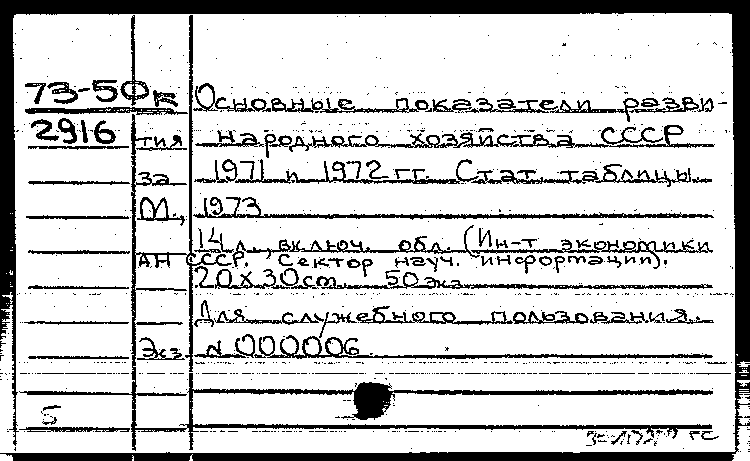 73-50к Основные показатели разви-
2916 тия народного хозяйства СССР
за 1971 и 1972 гг. Стат. таблицы.
М., 1973
14 л., включ. обл. (Ин-т экономики
АН СССР. Сектор науч. информации).
20 x 30 cm. 50 экз
Для служебного пользования.
Экз N 000006
Б